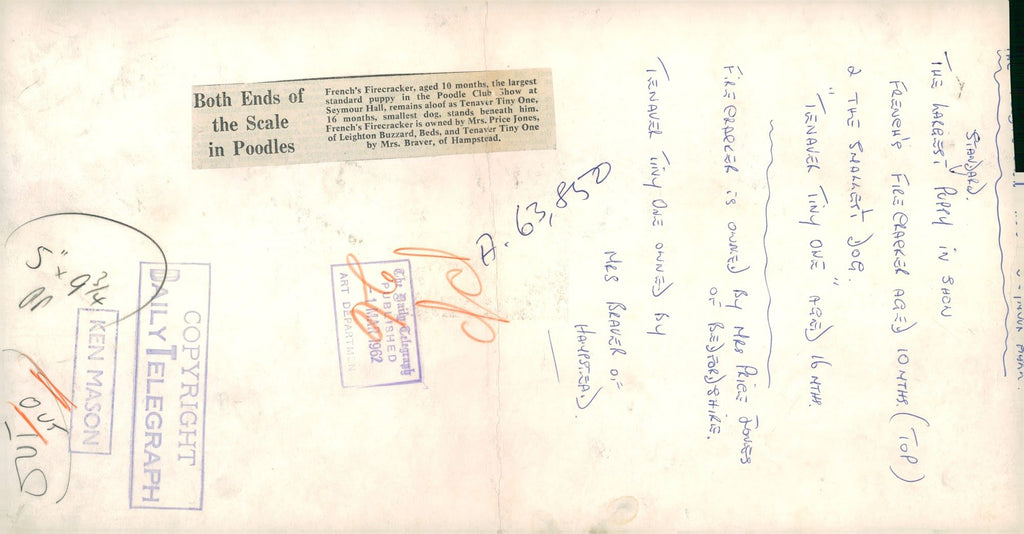 Both Ends of
the Scale
in Poodles
French's Firecracker, aged 10 months, the largest
standard puppy in the Poodle Club Show at
Seymour Hall, remains aloof as Tenaver Tiny One,
16 months, smallest dog, stands beneath him.
French's Firecracker is owned by Mrs. Price Jones,
of Leighton Buzzard, Beds, and Tenaver Tiny One
by Mrs. Braver, of Hampstead.
STANDARD.
THE LARGEST PUPPY IN SHOW
FRENCH'S FIRECRACKER AGED 10 MTHS (TOP)
& THE SMALLEST DOG.
"TENAVER TINY ONE" AGED 16 MTHS.
FIRECRACKER IS OWNED BY MRS PRICE JONES
OF BEDFORDSHIRE.
TENAVER TINY ONE OWNED BY
MRS BRAVER OF
HAMPSTEAD.
A. 63,850
The Daily Telegraph
PUBLISHED
-1 MAR 1962
ART DEPARTMEN
5" x 9 3/4
COPYRIGHT
DAILY TELEGRAPH
KEN MASON
OUT